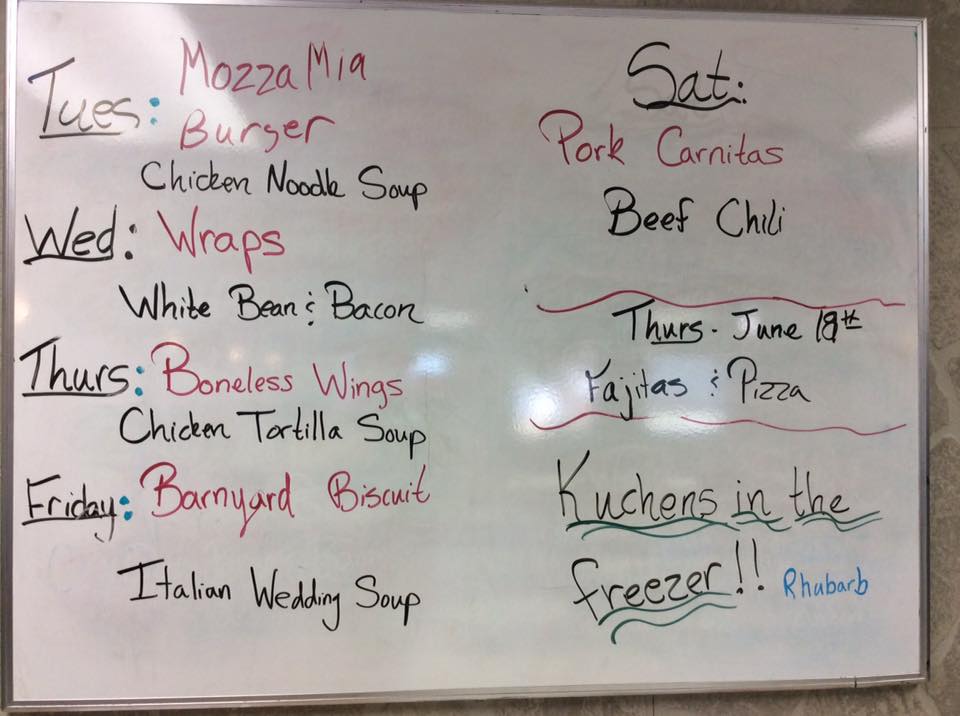 Tues: Mozza Mia
Burger
Chicken Noodle Soup
Wed: Wraps
White Bean & Bacon
Thurs: Boneless Wings
Chicken Tortilla Soup
Friday: Barnyard Biscuit
Italian Wedding Soup
Sat:
Pork Carnitas
Beef Chili
Thurs. June 18th
Fajitas & Pizza
Kuchens in the
freezer!! Rhubarb